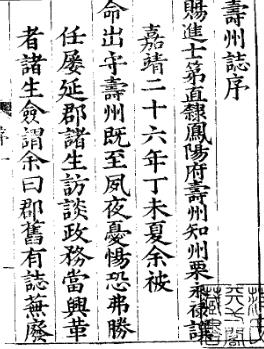 壽州誌序
賜進士第直隸鳳陽府壽州知州栗永祿譔
嘉靖二十六年丁未夏余被
命出守壽州既至夙夜憂惕恐弗勝
任屡延郡諸生訪談政務當興革
者諸生僉謂余曰郡舊有誌蕪廢